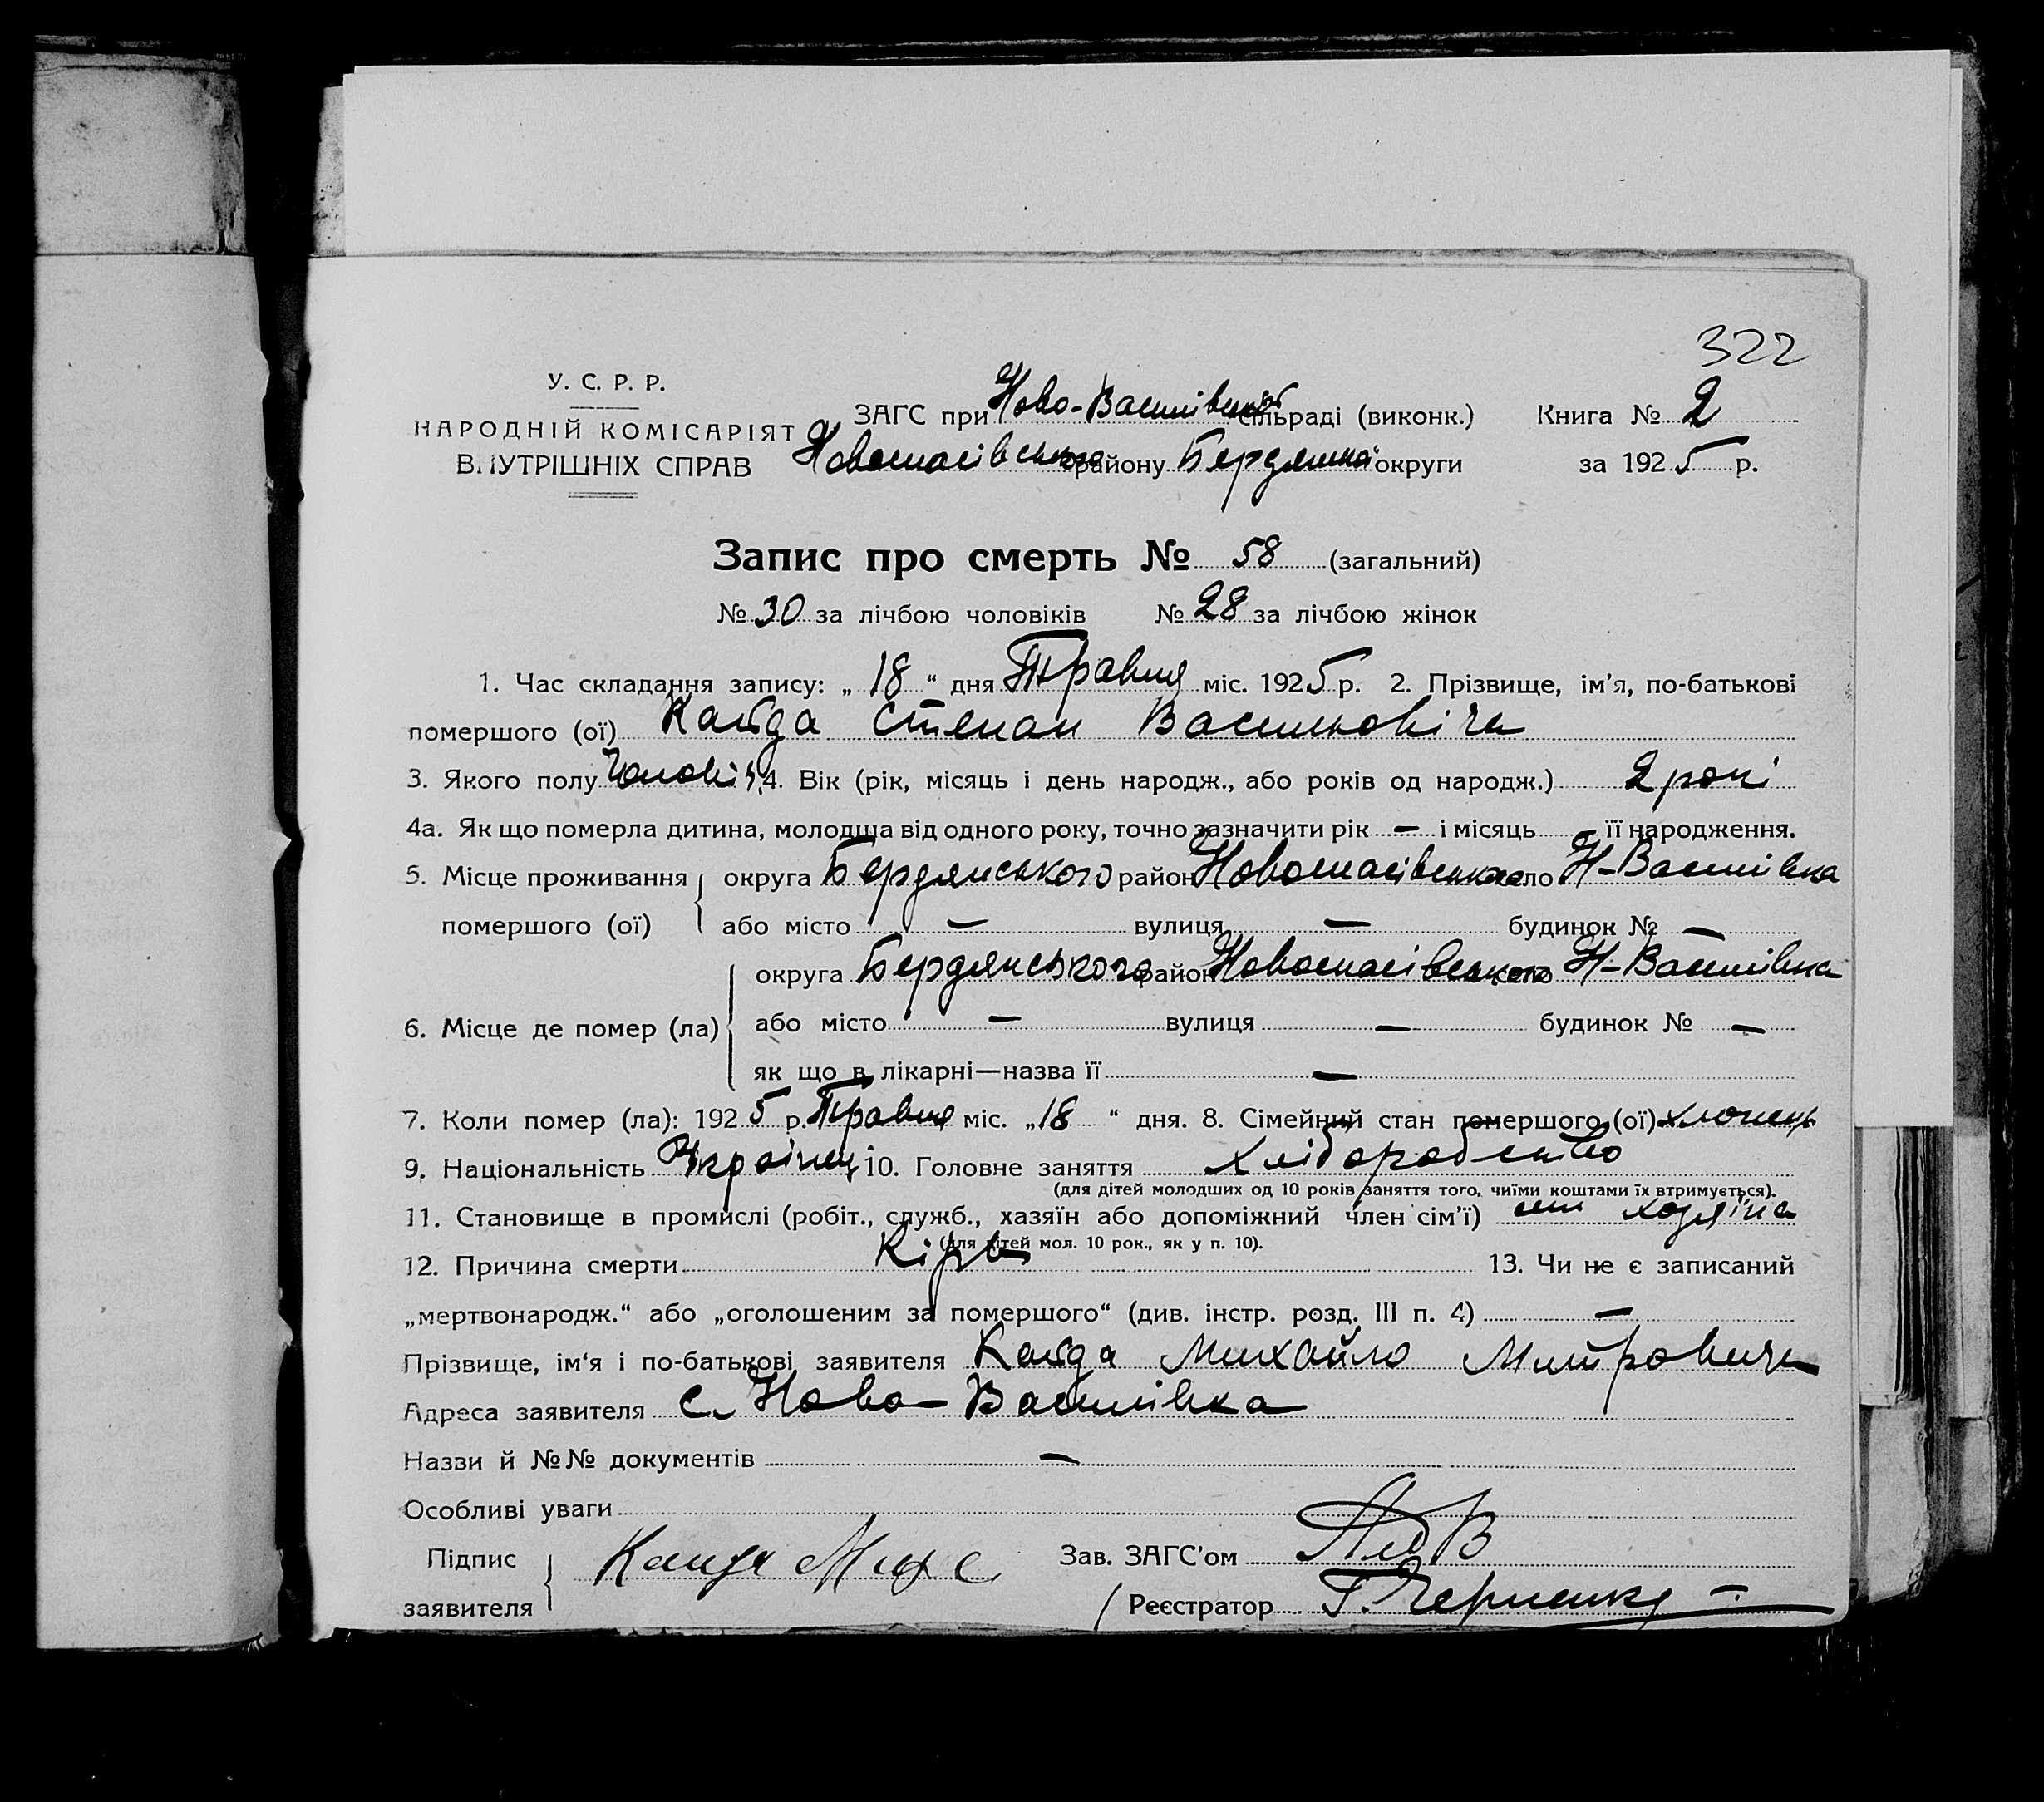 322
У. С. Р. Р.
НАРОДНІЙ КОМІСАРІЯТ
ВНУТРІШНІХ СПРАВ
ЗАГС при Ново-Василівській сільраді (виконк.) Книга № 2
Новоспасівського району Бердянської округи за 1925 р.
Запис про смерть № 58 (загальний)
№ 30 за лічбою чоловіків № 28 за лічбою жінок
1. Час складання запису: „ 18 “ дня Травня міс. 1925 р. 2. Прізвище, ім’я, по-батькові
помершого (ої) Кайда Степан Василювіч
3. Якого полу Чоловіч 4. Вік (рік, місяць і день народж., або років од народж.) 2 рокі
4а. Як що померла дитина, молодша від одного року, точно зазначити рік — і місяць — її народження.
5. Місце проживання округа Бердянського район Новоспасівського село Н-Василівка
помершого (ої) або місто — вулиця — будинок № —
округа Бердянського район Новоспасівського село Н-Василівка
6. Місце де помер (ла) або місто — вулиця — будинок № —
як що в лікарні—назва її —
7. Коли помер (ла): 1925 р. Травня міс. „18 “ дня. 8. Сімейний стан помершого (ої) хлопець
9. Національність Українец 10. Головне заняття хліборобство
(для дітей молодших од 10 років заняття того, чиїми коштами їх втримується).
11. Становище в промислі (робіт., служб., хазяїн або допоміжний член сім’ї) син хозяїна
(для дітей мол. 10 рок., як у п. 10).
12. Причина смерти Кірь 13. Чи не є записаний
„мертвонародж.“ або „оголошеним за помершого“ (див. інстр. розд. III п. 4) —
Прізвище, ім‘я і по-батькові заявителя Кайда Михайло Митровичь
Адреса заявителя с. Ново-Василівка
Назви й №№ документів —
Особливі уваги
Підпис
заявителя Кайда
Зав. ЗАГС’ом
Реєстратор Г. Черненко